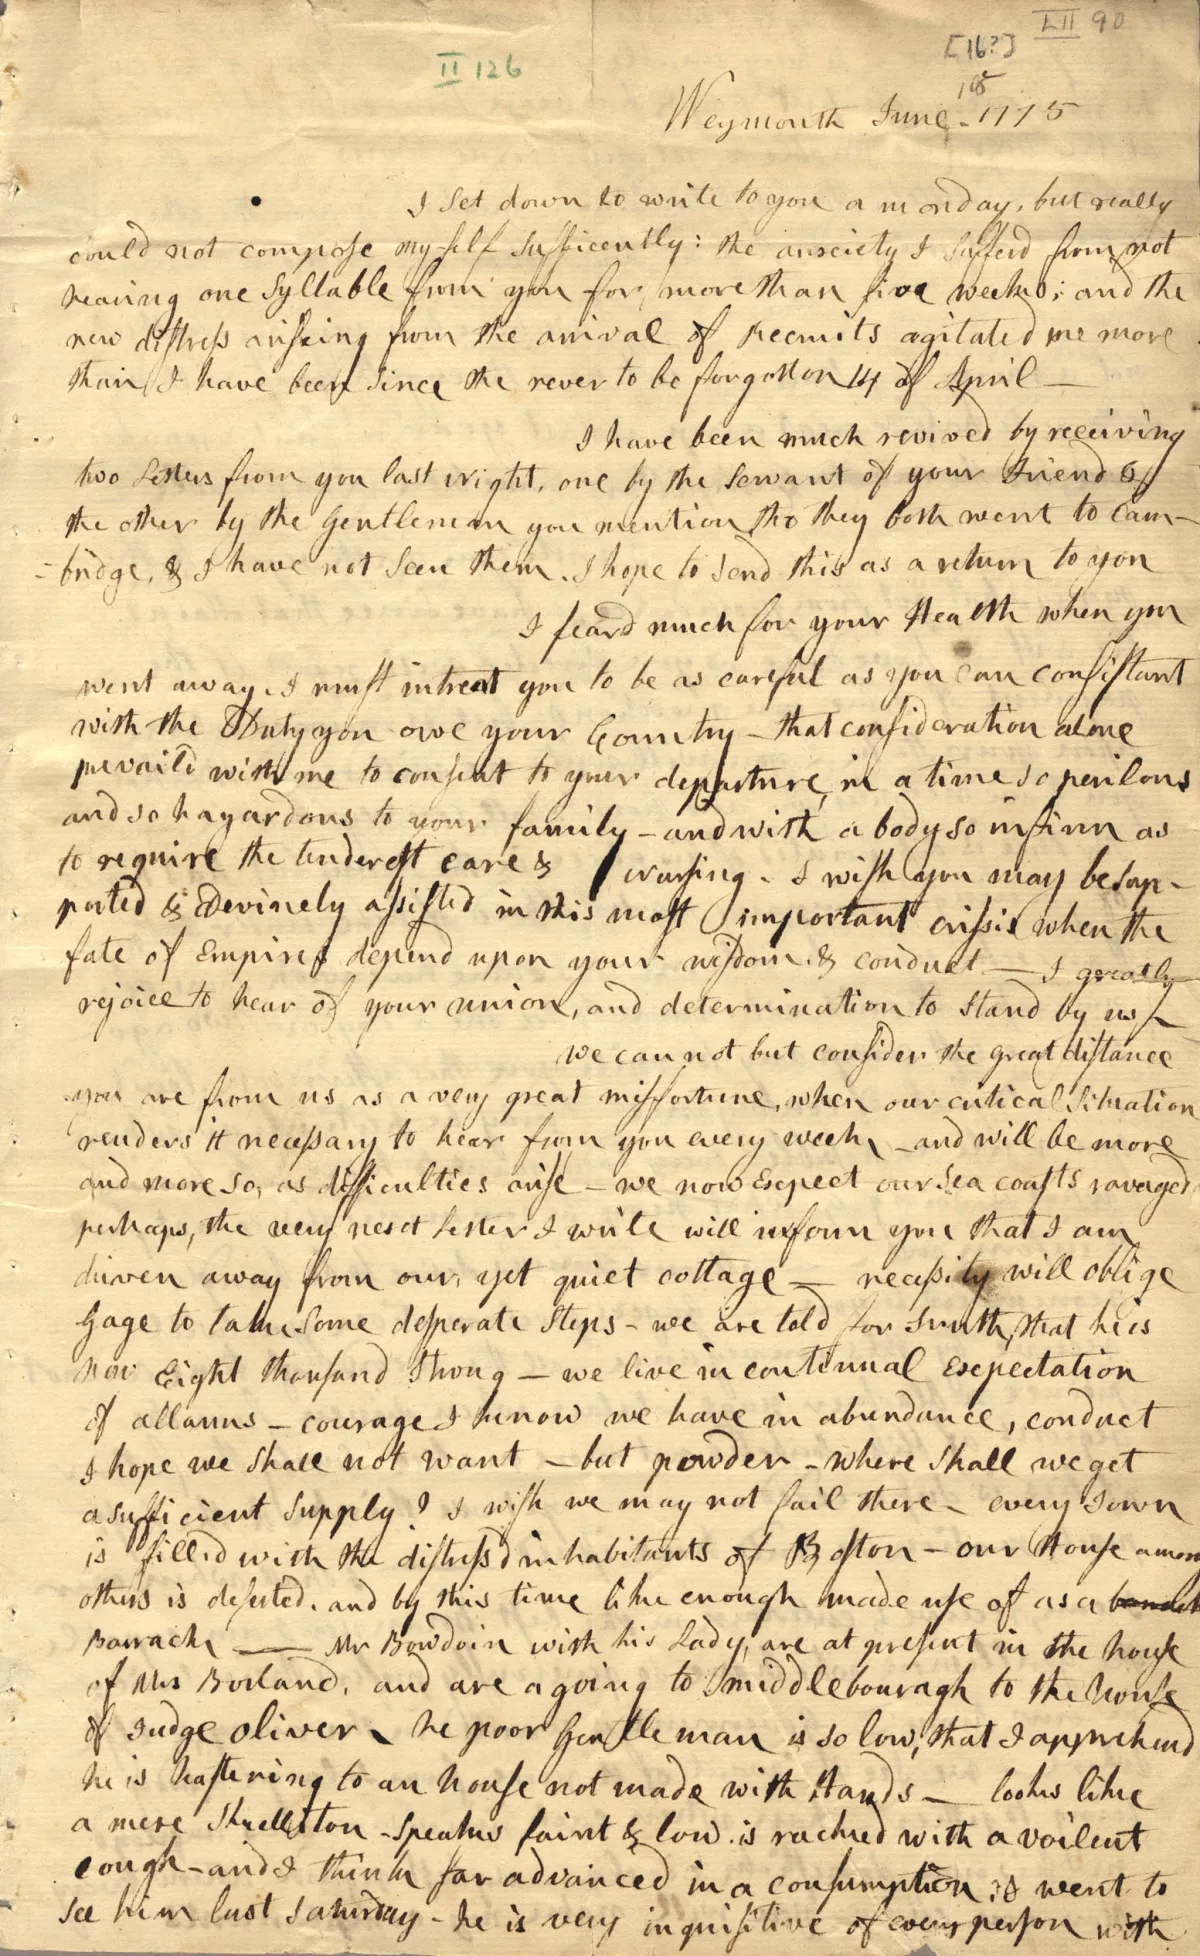 LII 90
[16?]
II 126
Weymouth June 1775
I set down to write to you a monday, but really
could not compose my self sufficently: the anxiety I sufferd from not
hearing one syllable from you for more than five weeks; and the
new distress arising from the arrival of recruits agitated me more
than I have been since the never to be forgotton 14 of April —
I have been much revived by receiving
two Letters from you last night, one by the servant of your Friend &
the other by the Gentlemen you mention, tho they both went to Cam-
-bridge, & I have not seen them. I hope to send this as a return to you
I feard much for your Health when you
went away. I must intreat you to be as careful as you can consistant
with the Duty you owe your Country — that consideration alone
prevaild with me to consent to your departure, in a time so perilous
and so hazardous to your family — and with a body so infirm as
to require the tenderest care & nursing. I wish you may be sup-
ported & Devinely assisted in this most important crisis when the
fate of Empires depend upon your wisdom & conduct — I greatly
rejoice to hear of your union, and determination to stand by us —
we cannot but consider the great distance
you are from us as a very great misfortune, when our critical situation
renders it necessary to hear from you every week, and will be more
and more so, as difficulties arise — we now Expect our Sea coasts ravaged
perhaps, the very next Letter I write will inform you that I am
driven away from our, yet quiet cottage — necessity will oblige
Gage to take some desperate steps — we are told for Truth, that he is
now Eight thousand strong — we live in continual Expectation
of allarms — courage I know we have in abundance, conduct
I hope we shall not want — but powder — where shall we get
a sufficient supply? I wish we may not fail there — every Town
is filled with the distressd inhabitants of Boston — our House among
others is deserted, and by this time like enough made use of as a
Barrack — Mr Bowdoin with his Lady, are at present in the house
of Mrs Borland, and are a going to Middlebouragh to the house
of Judge Oliver, he poor Gentleman is so low, that I apprehend
he is hastening to an house not made with Hands — looks like
a mere skelliton, speaks faint & low, is racked with a voilent
cough — and I think far advanced in a consumption, I went to
see him last saturday — he is very inquisitive of every person with